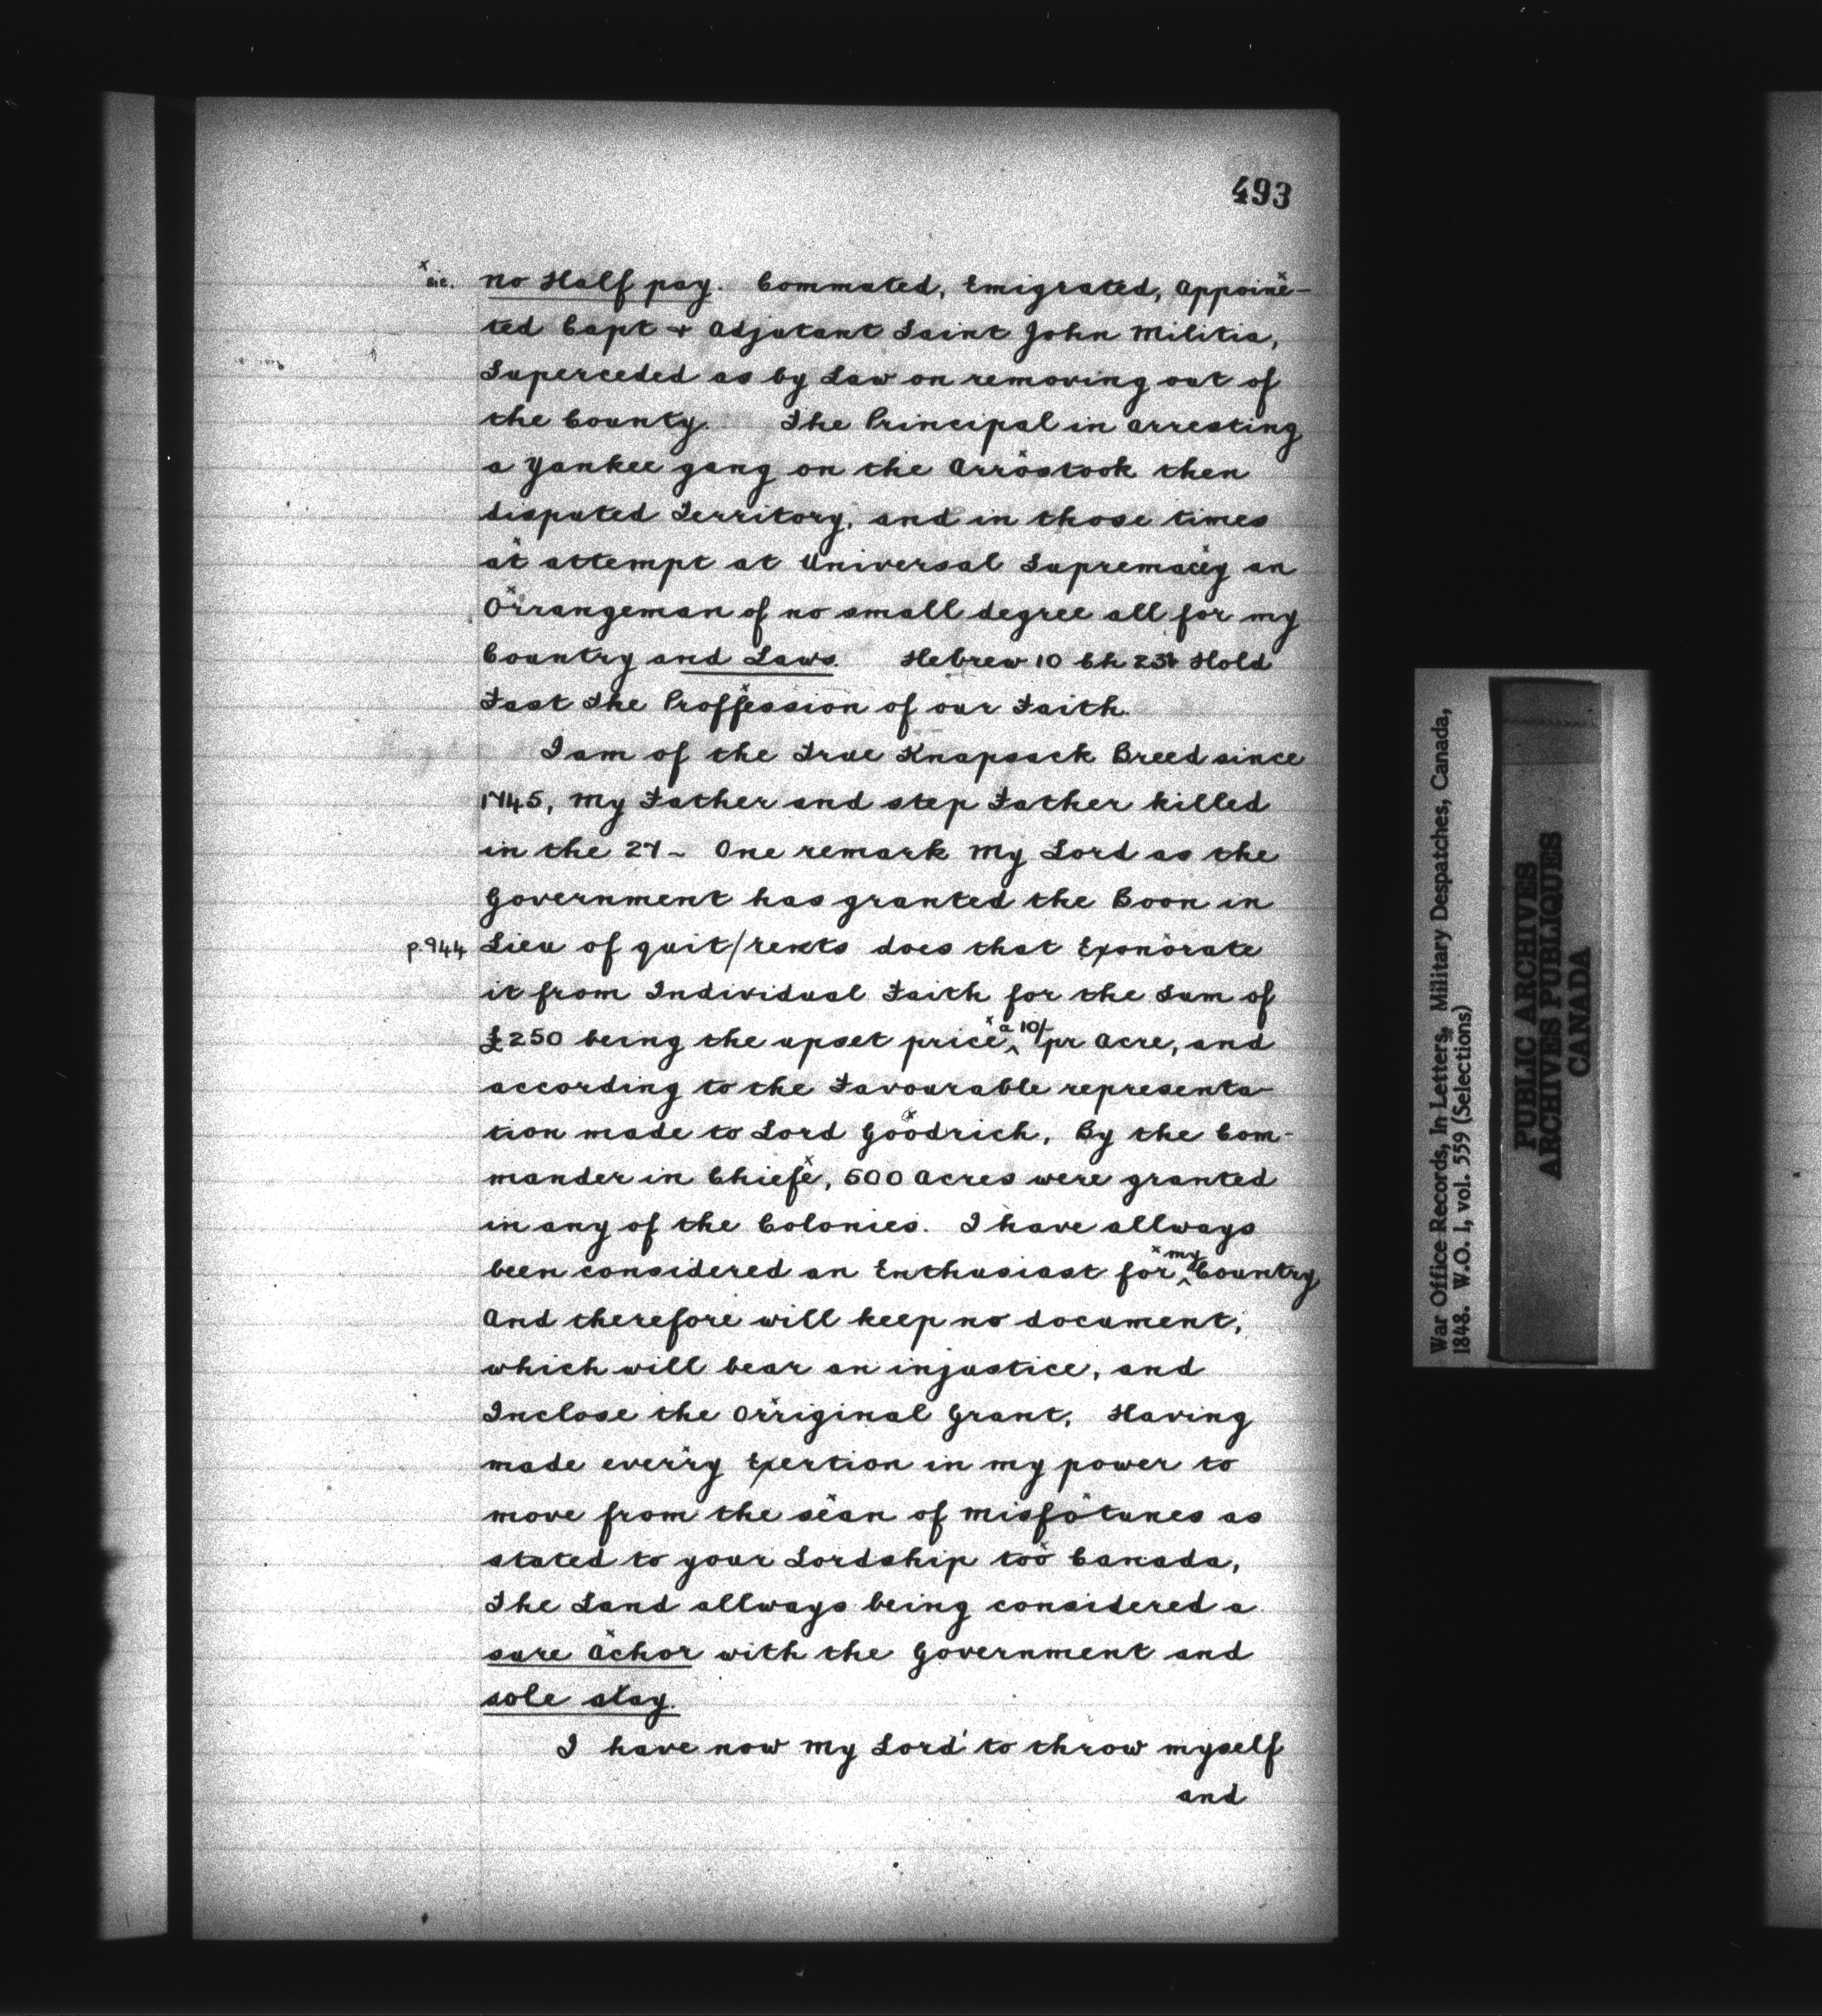 493
x sic. No Half pay. Commuted, Emigrated, Appoine-
ted Capt + Adjutant Saint John Militia,
Superceded as by Law on removing out of
the County. The Principal in arresting
a Yankee gang on the Arrostook then
disputed Territory, and in those times
at attempt at Universal Supremacey an
Orrangeman of no small degree all for my
Country and Laws. Hebrew 10 Ch 23 Hold
Fast The Proffession of our Faith.
I am of the True Knapsack Breed since
1745, My Father and step Father killed
in the 27 - One remark My Lord as the
Government has granted the Boon in
p.944 Lieu of quit/rents does that Exonorate
it from Individual Faith for the Sum of
£250 being the upset price x a 10/- pr Acre, and
according to the Favourable representa-
tion made to Lord Goodrich, By the Com-
mander in Chiefe, 500 Acres were granted
in any of the Colonies. I have allways
been considered an Enthusiast for x my Country
And therefore will keep no document,
which will bear an injustice, and
Inclose the Orriginal Grant, Having
made everry Exertion in my power to
move from the sean of Misfotunes as
stated to your Lordship too Canada,
The Land allways being considered a
sure Achor with the Government and
sole stay.
I have now My Lord to throw myself
and
War Office Records, In Letters, Military Despatches, Canada,
1848. W.O. 1, vol. 559 (Selections)
PUBLIC ARCHIVES
ARCHIVES PUBLIQUES
CANADA